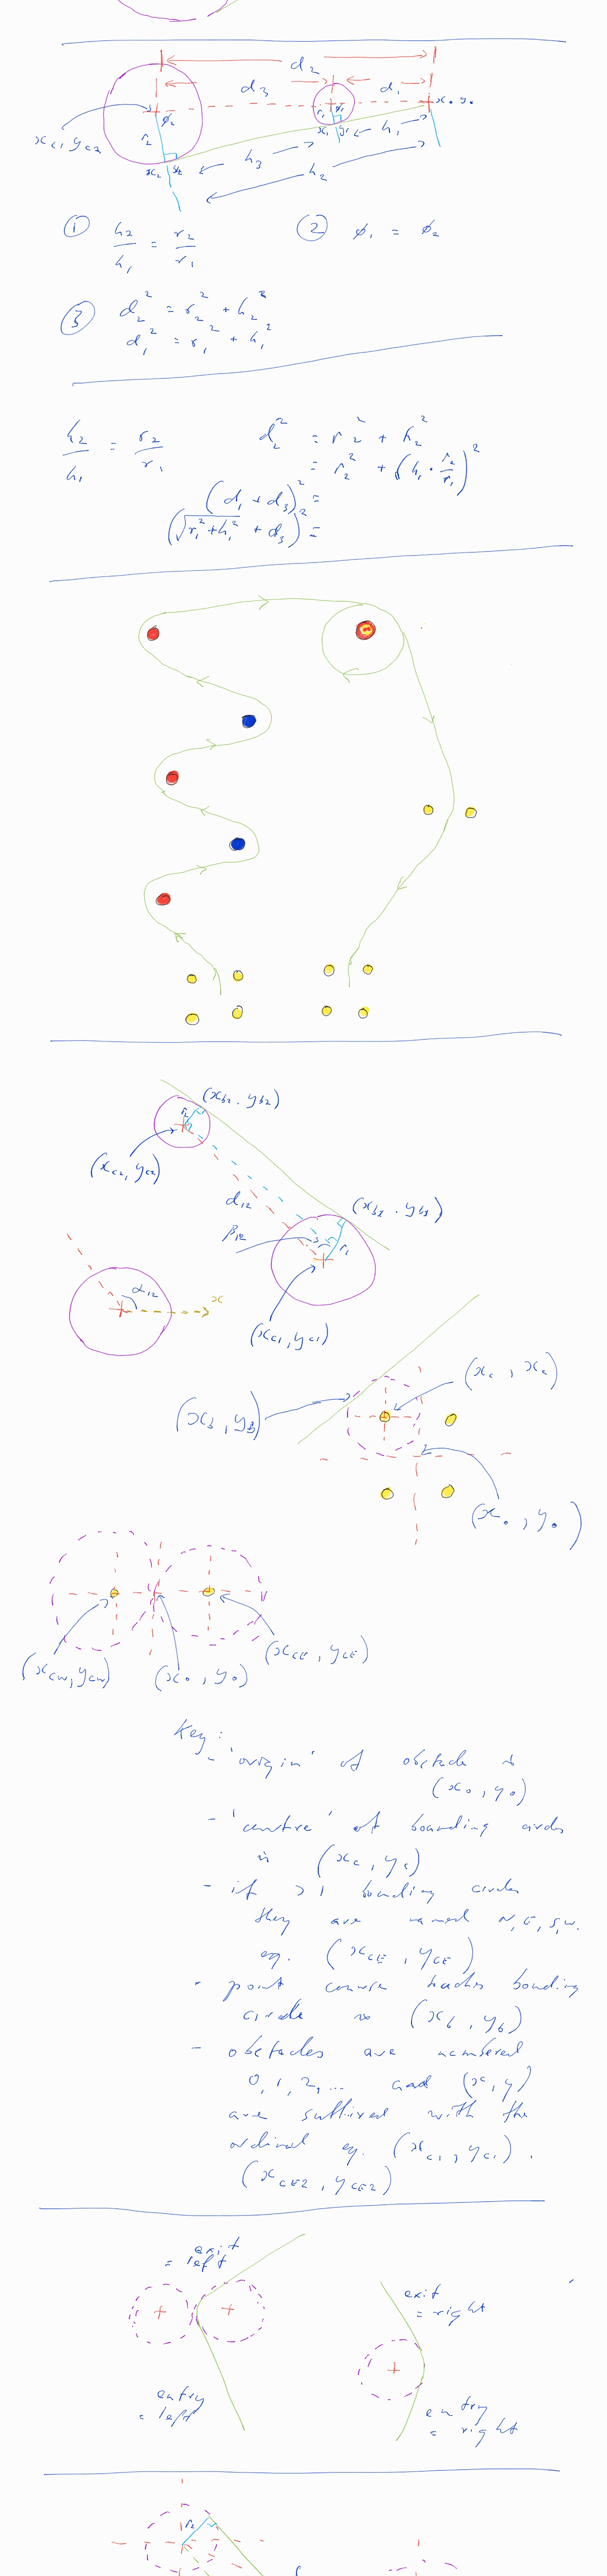 d₂
d₃ d₁
x₀ y₀
φ₂ r₁ φ₁
r₂
x₁ y₁ h₁
x_c₂ y_c₂
x₂ y₂ h₃ h₂
① h₂/h₁ = r₂/r₁ ② φ₁ = φ₂
③ d₂² = r₂² + h₂²
d₁² = r₁² + h₁²
h₂/h₁ = r₂/r₁ d₂² = r₂² + h₂²
= r₂² + (h₁ · r₂/r₁)²
(d₁ + d₃)² =
(√(r₁² + h₁²) + d₃)² =
(x_b2, y_b2)
r₂
(x_c2, y_c2)
d₁₂
(x_b1, y_b1)
β₁₂
r₁
α₁₂ x
(x_c1, y_c1)
(x_c, x_c)
(x_b, y_b)
(x₀, y₀)
(x_CE, y_CE)
(x_CW, y_CW) (x₀, y₀)
Key:
- 'origin' of obstacle is
(x₀, y₀)
- 'centre' of bounding circles
is (x_c, y_c)
- if >1 bounding circles
they are named N, E, S, W.
eg. (x_CE, y_CE)
- point course touches bounding
circle is (x_b, y_b)
- obstacles are numbered
0, 1, 2, ... and (x, y)
are suffixed with the
ordinal eg. (x_c1, y_c1).
(x_CE2, y_CE2)
exit
= left
exit
= right
entry
= left
entry
= right
r₂